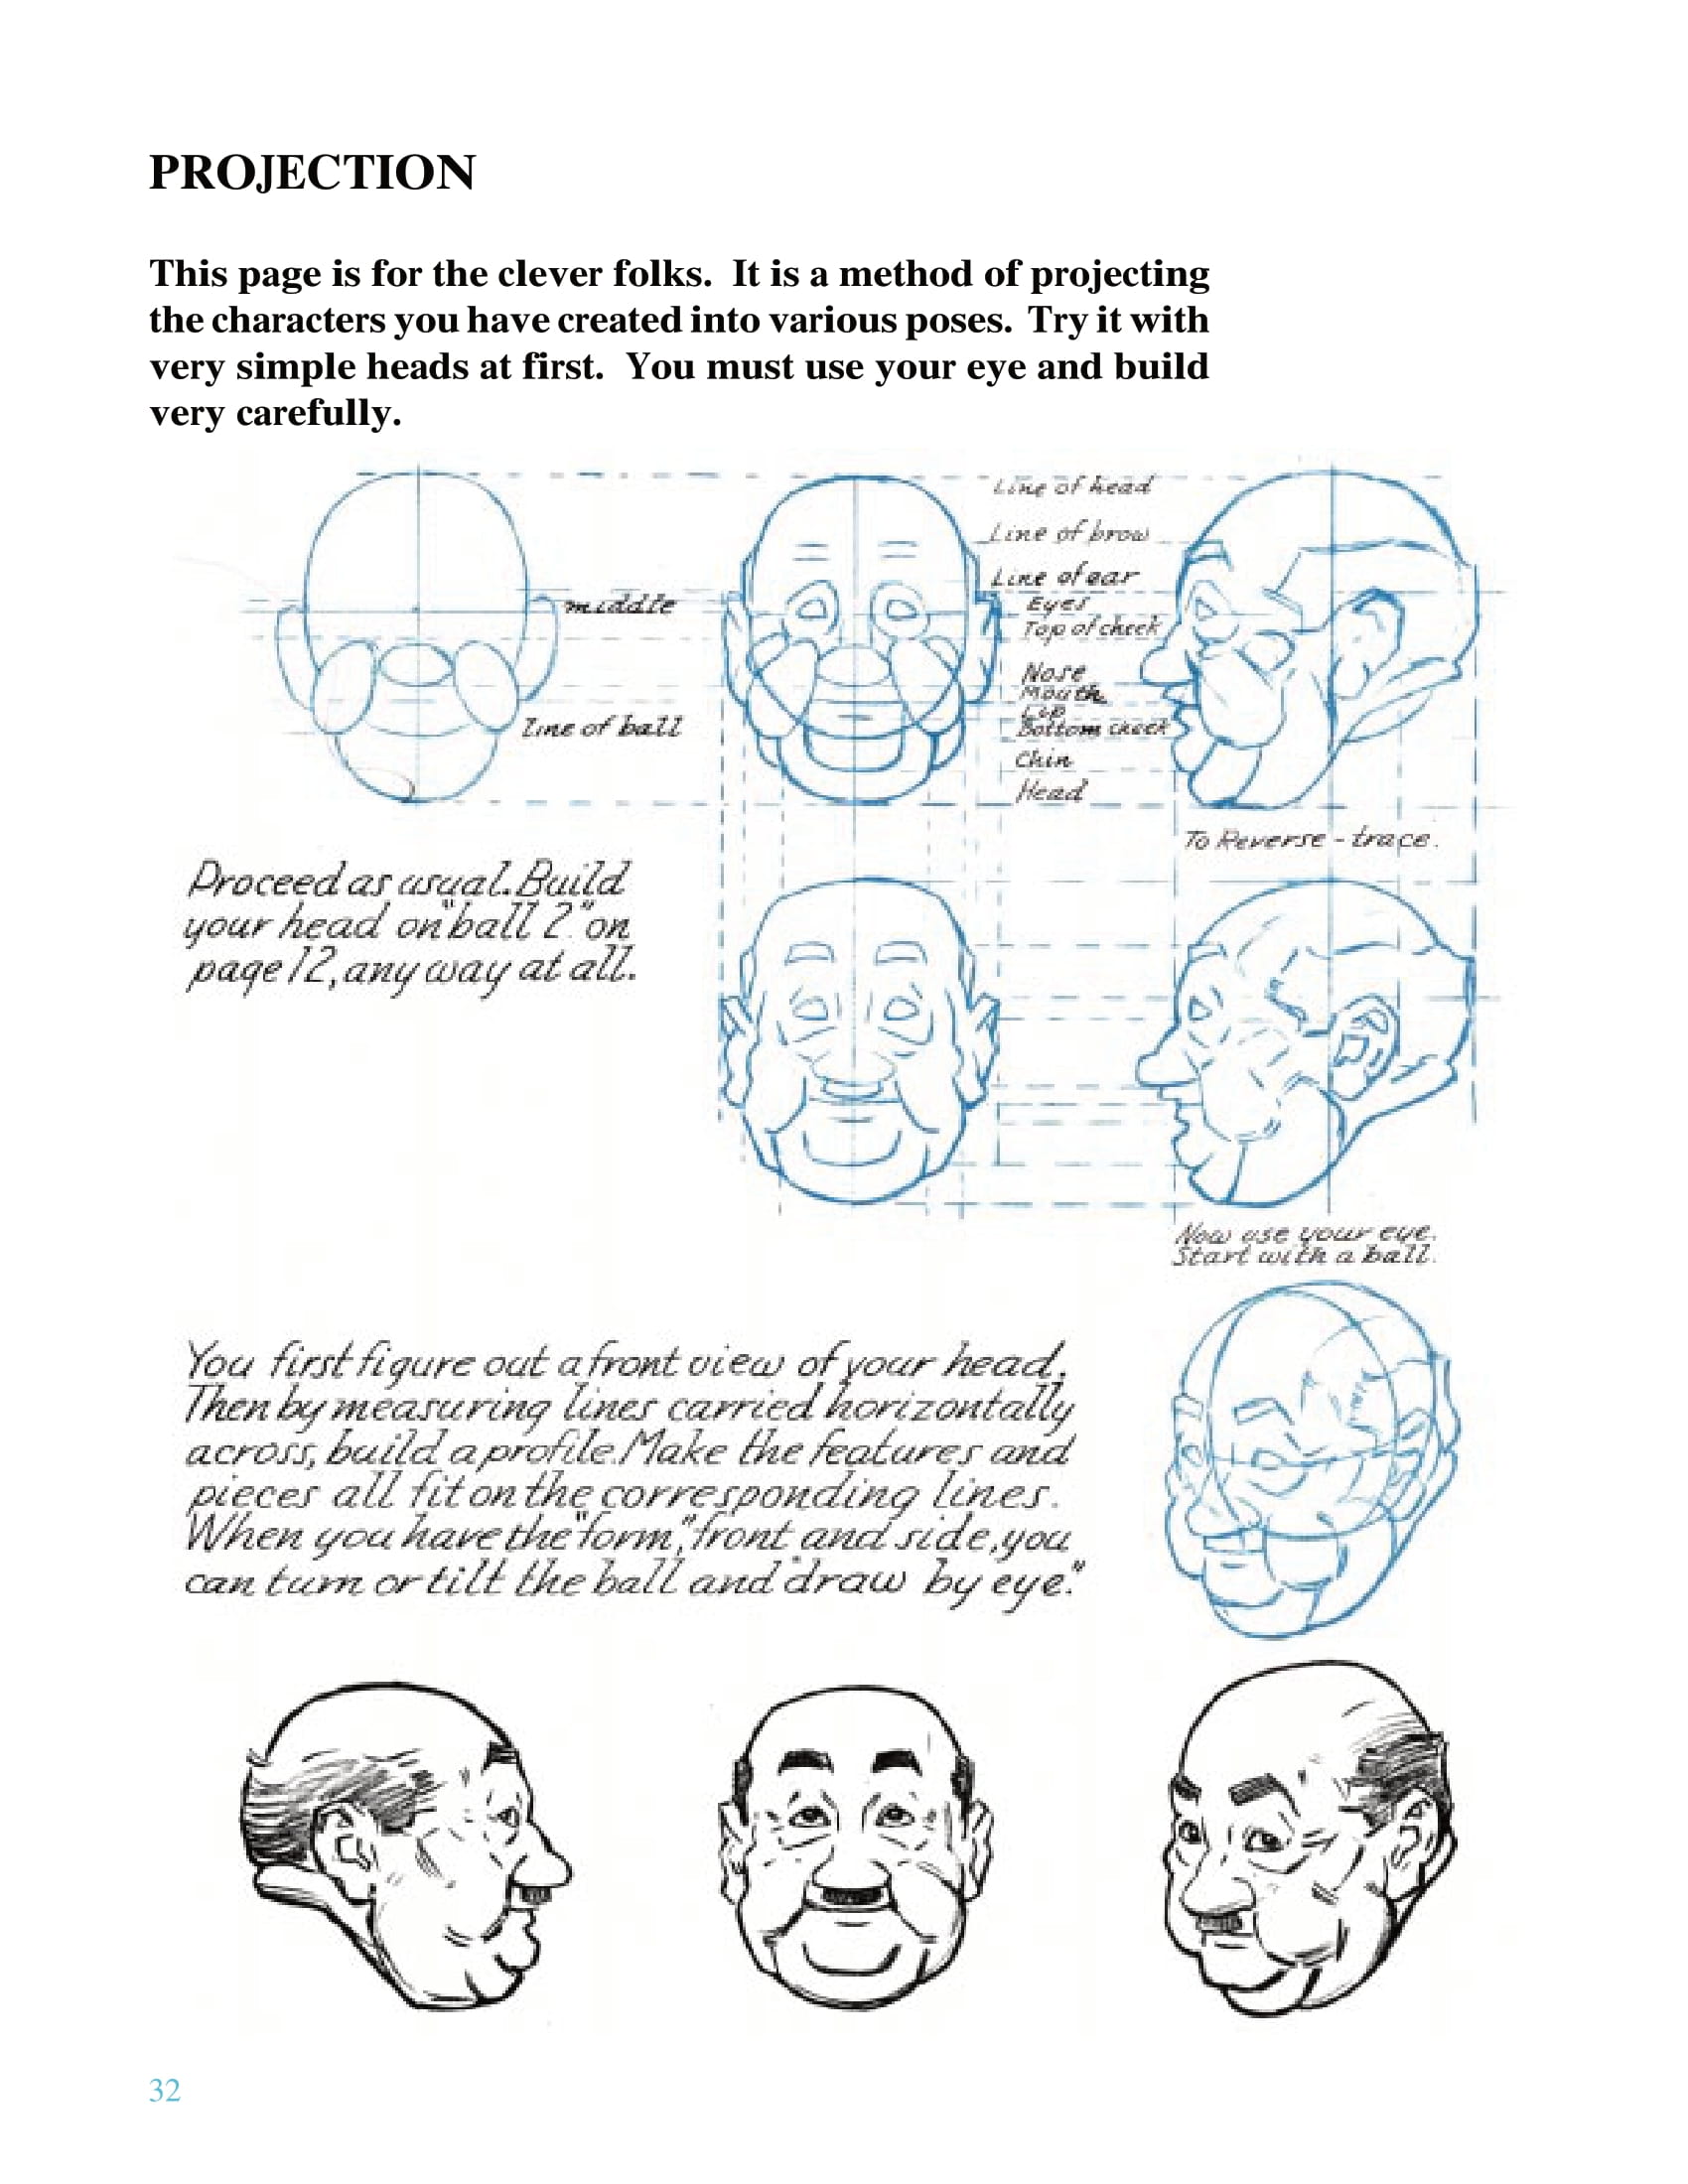 PROJECTION
This page is for the clever folks. It is a method of projecting
the characters you have created into various poses. Try it with
very simple heads at first. You must use your eye and build
very carefully.
Line of head
Line of brow
Line of ear
middle
Eyes
Top of cheek
Nose
Mouth
Lip
Line of ball
Bottom cheek
Chin
Head
To Reverse - trace.
Proceed as usual. Build
your head on "ball 2" on
page 12, any way at all.
Now use your eye.
Start with a ball.
You first figure out a front view of your head.
Then by measuring lines carried horizontally
across, build a profile. Make the features and
pieces all fit on the corresponding lines.
When you have the "form," front and side, you
can turn or tilt the ball and "draw by eye."
32